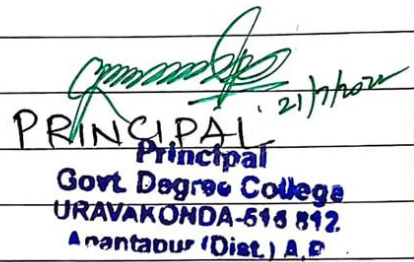 21/7/2022
PRINCIPAL
Principal
Govt. Degree College
URAVAKONDA-515 812.
Anantapur (Dist.) A.P